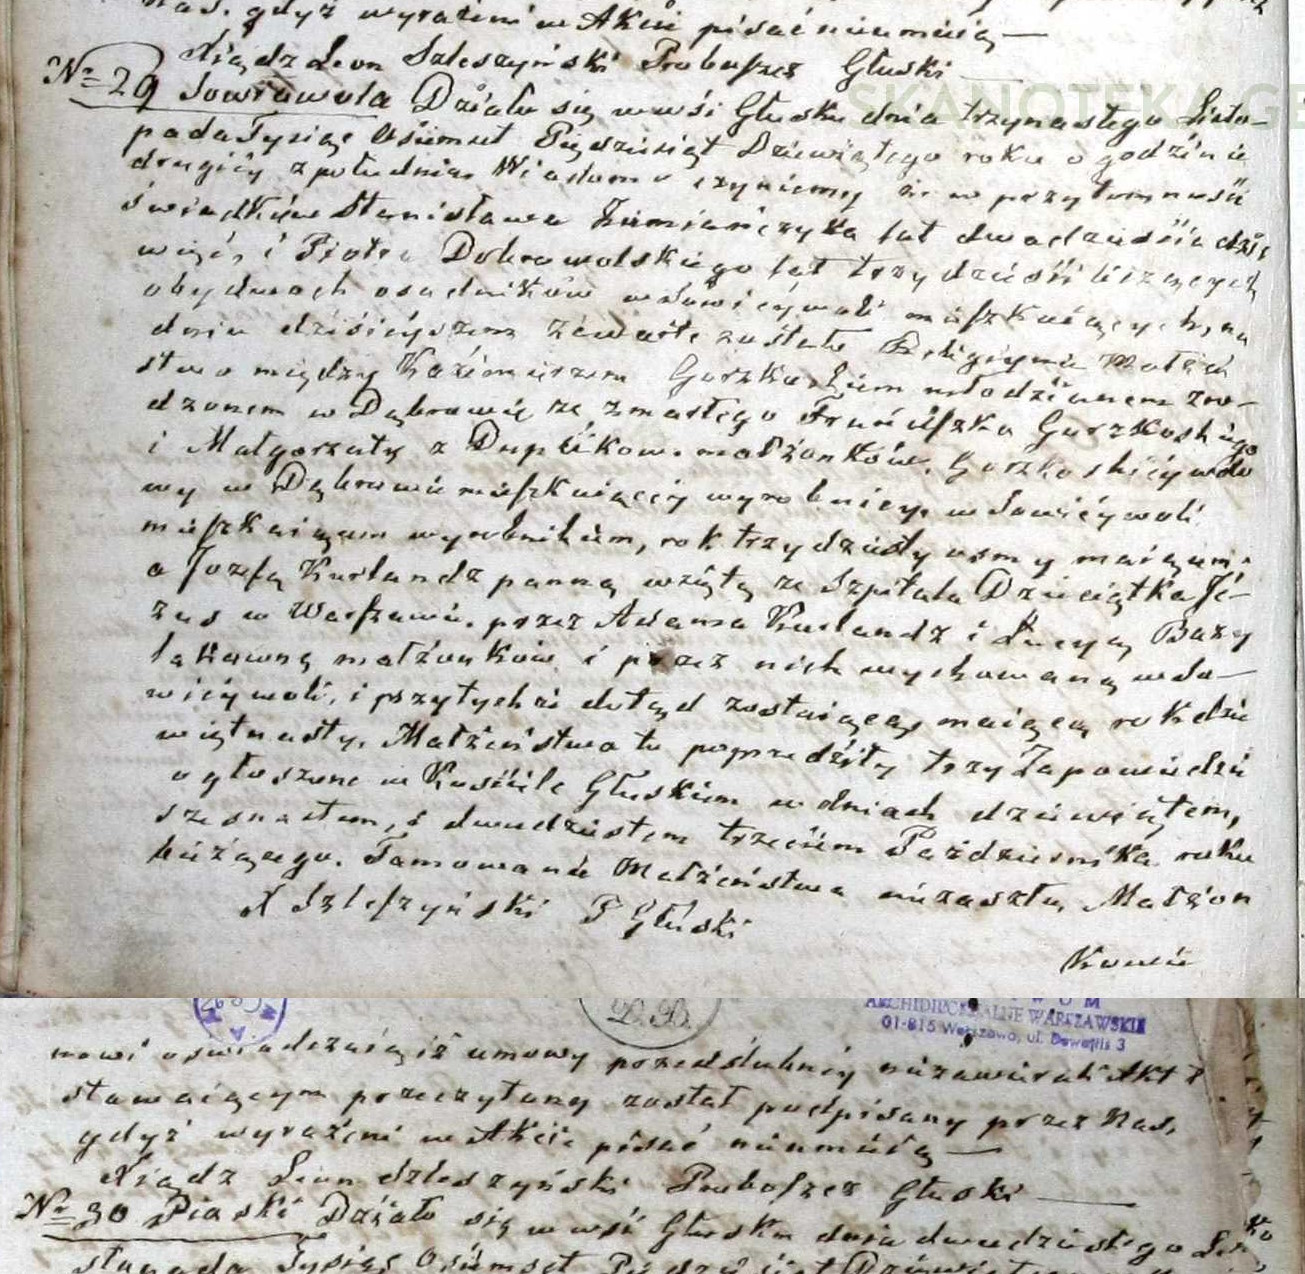 nas, gdyż wyrażeni w Akcie pisać nieumieią —
Xiądz Leon Szleszyński Proboszcz Głuski
SKANOTEKA.GE
Nr 29 Sowiawola Działo się w wsi Głusku dnia trzynastego Listo-
pada Tysiąc Ośmset Pięćdziesiąt Dziewiątego roku o godzinie
drugiéy z południa. Wiadomo czyniemy że w przytomności
świadków Stanisława lat dwadzieścia dzie
więć, i Piotra Dobrowolskiego lat trzydzieści liczących
obydwuch osadników w Sowiéywoli mieszkaiących, na
dniu dzisieyszem zawarte zostało Religiyne Małżeń
stwo między Kazimierzem Gorzkoskiem młodzianem zro-
dzonem w Dąbrowie ze zmarłego Franciszka Gorzkoskiego
i Małgorzaty z małżonków. Gorzkoskiéy wdo
wy w Dąbrowie mieszkaiącéy wyrobnicy, w Sowiéywoli
mieszkaiącem wyrobnikiem, rok trzydziesty osmy maiącem;
a Jozefą Kurlandz panną wziętą ze Szpitala Dzieciątka Je-
zus w Warszawie. przez Adama Kurlandz i Łucyą Bazy
lakowną małżonków i przez nich wychowaną w So-
wiéywoli, i przy tychże dotąd zostaiącą, maiącą rok dzie
więtnasty. Małżeństwo to poprzedziły trzy Zapowiedzie
ogłoszone w Kościele Głuskiem w dniach dziewiątem,
szesnastem, i dwudziestem trzeciem Października roku
bieżącego. Tamowanie Małżeństwa niezaszło, Małżon
X Szleszyński P Głuski
Kowie
ARCHIDIECEZJALNE WARSZAWSKIE
01-815 Warszawa, ul. Dewajtis 3
nowi oswiadczaią iż umowy przedślubnéy niezawierali Akt t
stawaiącym przeczytany został podpisany przez Nas,
gdyż wyrażeni w Akcie pisać nieumieią —
Xiądz Leon Szleszyński Proboszcz Głuski
Nr 30 Piaski Działo się w wsi Głusku dnia dwudziestego Lis
stopada Tysiąc Ośmset Pięćdziesiąt Dziewiątego